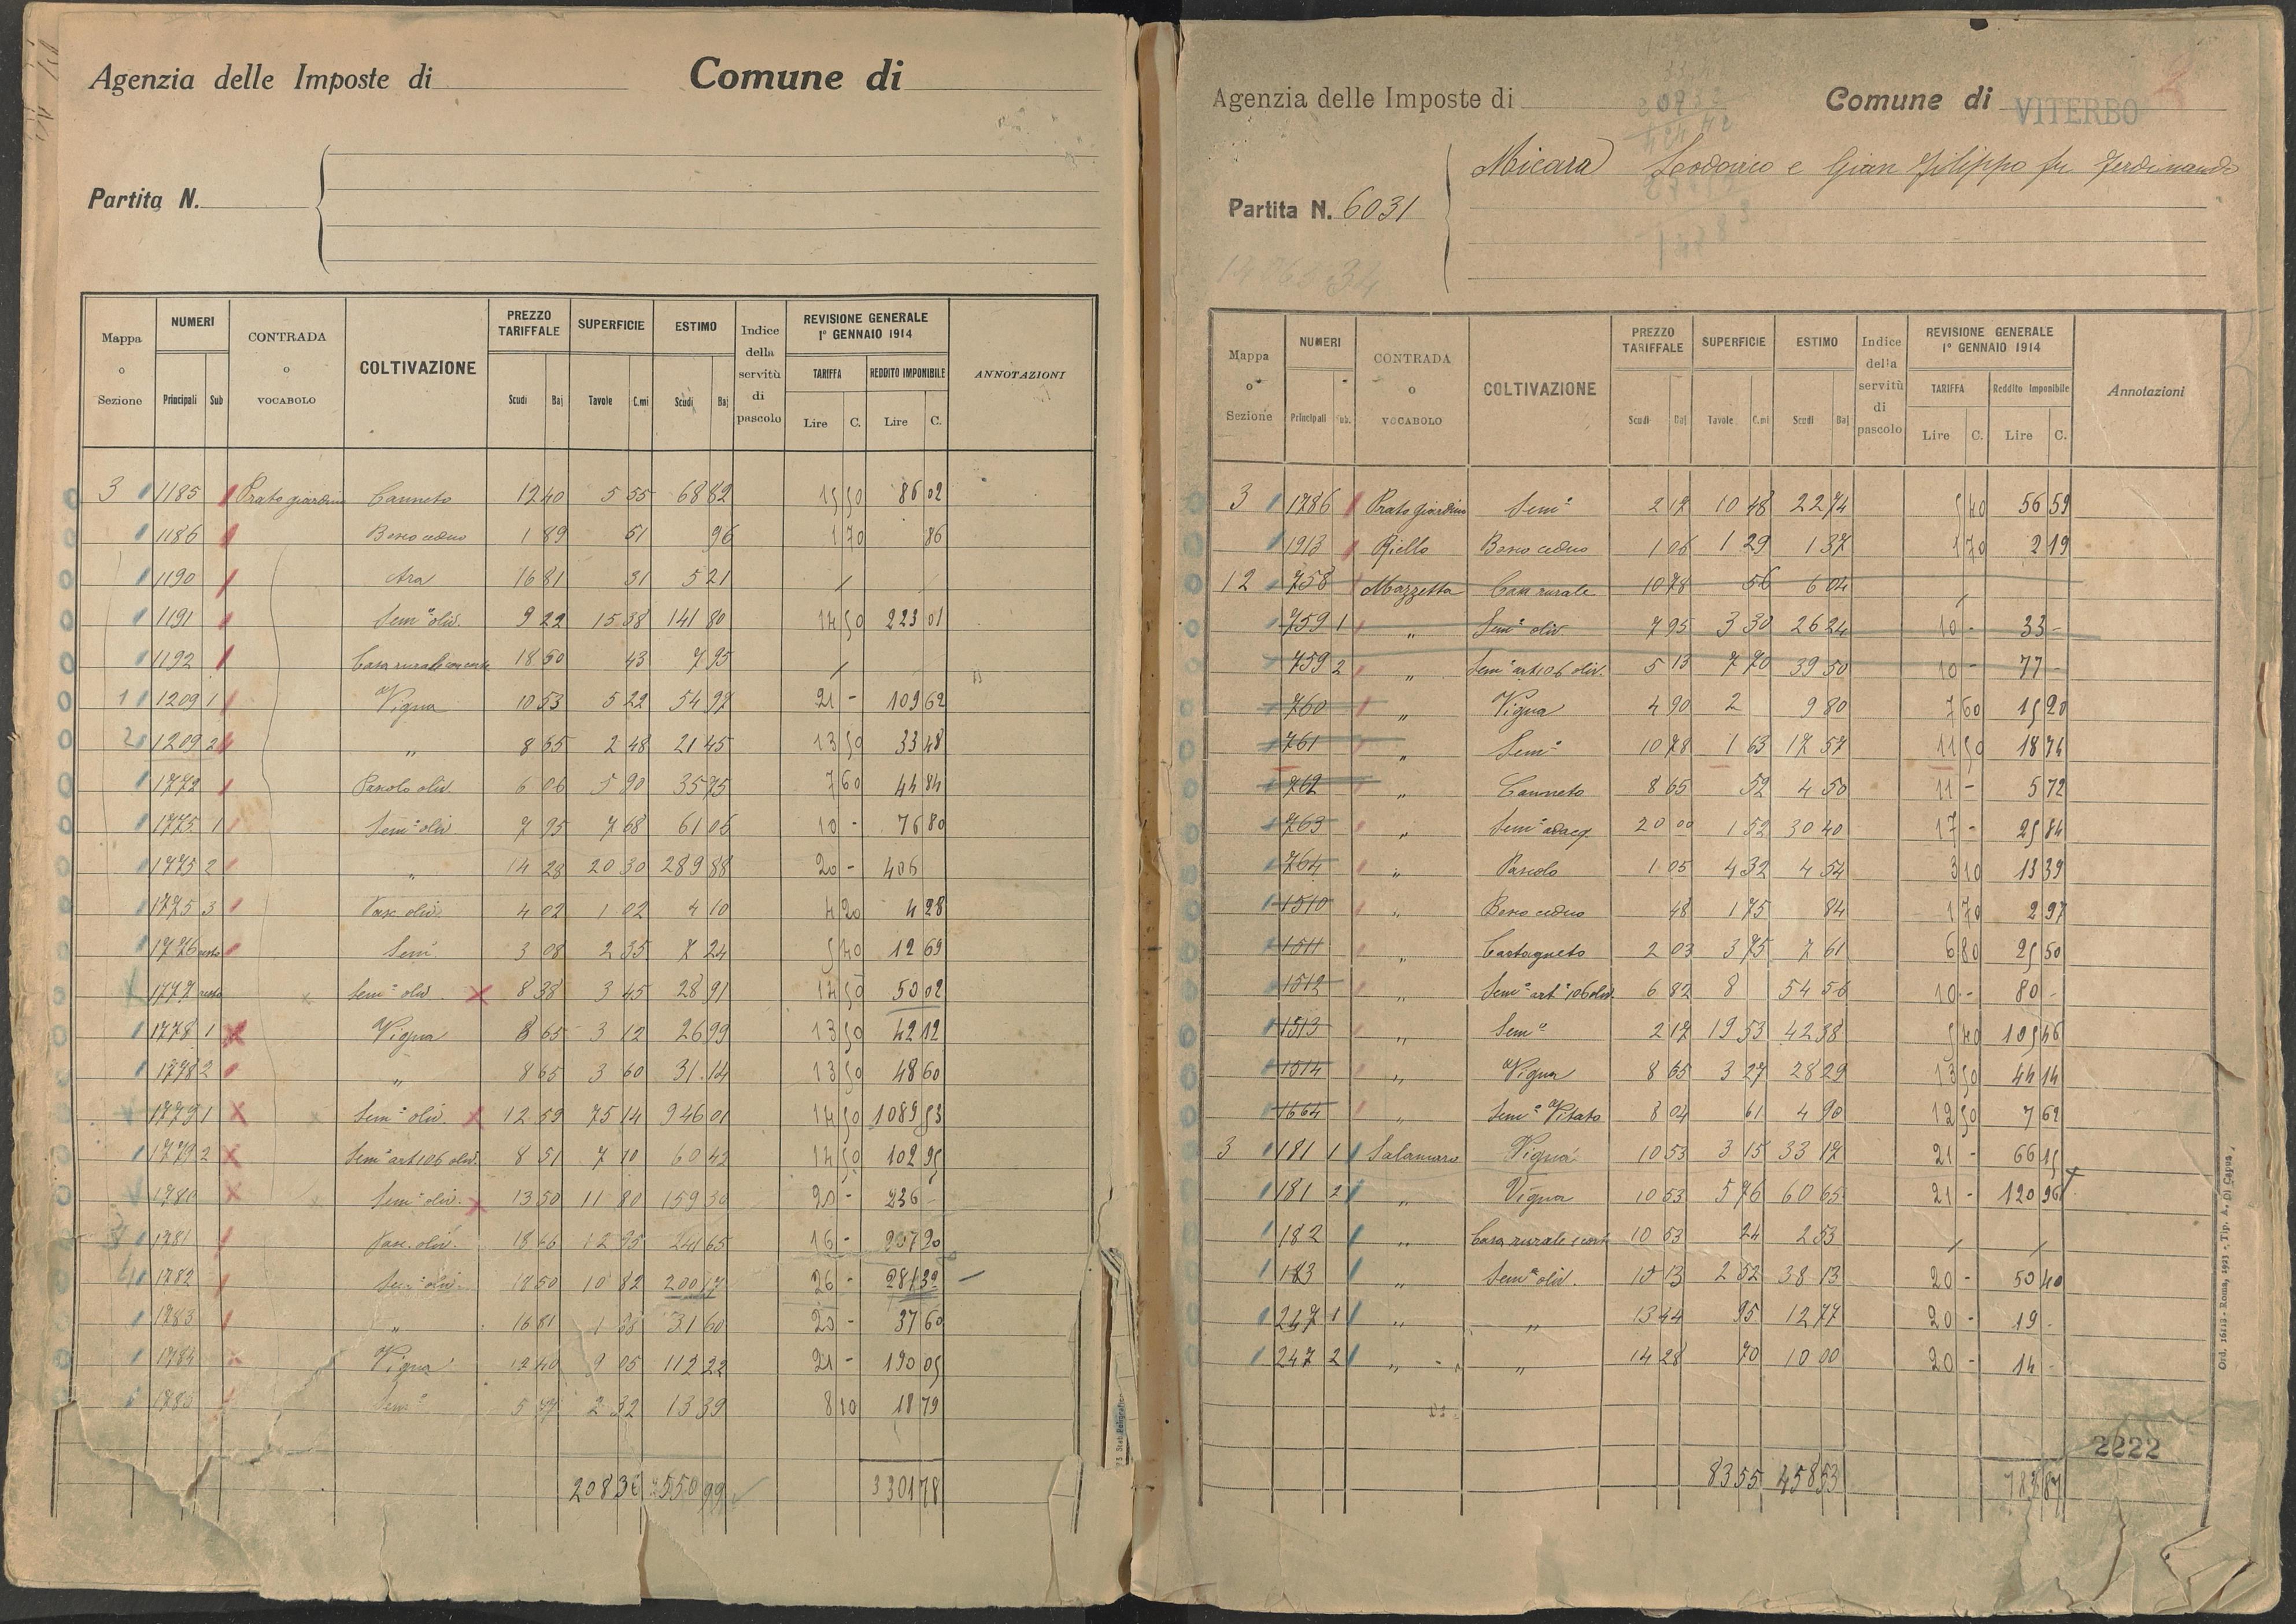 Agenzia delle Imposte di Comune di
Partita N.
Mappa o Sezione NUMERI CONTRADA o VOCABOLO COLTIVAZIONE PREZZO TARIFFALE SUPERFICIE ESTIMO Indice della servitù di pascolo REVISIONE GENERALE 1° GENNAIO 1914 ANNOTAZIONI
Principali Sub Scudi Baj Tavole C.mi Scudi Baj TARIFFA REDDITO IMPONIBILE
Lire C. Lire C.
3 1185 Prato giardino Canneto 12 40 5 55 68 82 15 50 86 02
1186 Bosco ceduo 1 89 51 96 1 70 86
1190 Ara 16 81 31 5 21
1191 Sem° oliv. 9 22 15 38 141 80 14 50 223 01
1192 Casa rurale con corte 18 50 43 7 95
1209 1 Vigna 10 53 5 22 54 97 21 - 109 62
1209 2 " 8 65 2 48 21 45 13 50 33 48
1772 Pascolo oliv. 6 06 5 90 35 75 7 60 44 84
1775 1 Sem° oliv 7 95 7 68 61 06 10 - 76 80
1775 2 " 14 28 20 30 289 88 20 - 406
1775 3 Pasc. oliv. 4 02 1 02 4 10 4 20 4 28
1776 resto Sem. 3 08 2 35 7 24 5 40 12 69
1777 resto Sem° oliv. 8 38 3 45 28 91 14 50 50 02
1778 1 Vigna 8 65 3 12 26 99 13 50 42 12
1778 2 " 8 65 3 60 31.14 13 50 48 60
1779 1 Sem° oliv. 12 59 75 14 946 01 14 50 1089 53
1779 2 Sem° art 106 oliv. 8 51 7 10 60 42 14 50 102 95
1780 Sem° oliv. 13 50 11 80 159 30 20 - 236 -
1781 Pasc. oliv. 18 66 12 95 241 65 16 - 207 20
1782 Sem° oliv. 18 50 10 82 200 17 26 - 281 32
1783 " 16 81 1 88 31 60 20 - 37 60
1784 Vigna 12 40 9 05 112 22 21 - 190 05
Sem° 5 77 2 32 13 39 8 10 18 79
208 36 2550 99 3301 78
Agenzia delle Imposte di Comune di VITERBO
Partita N. 6031 Micara Lodovico e Gian Filippo fu Ferdinando
Mappa o Sezione NUMERI CONTRADA o VOCABOLO COLTIVAZIONE PREZZO TARIFFALE SUPERFICIE ESTIMO Indice della servitù di pascolo REVISIONE GENERALE 1° GENNAIO 1914 Annotazioni
Principali Sub. Scudi Baj Tavole C.mi Scudi Baj TARIFFA Reddito Imponibile
Lire C. Lire C.
3 1786 Prato giardino Sem° 2 17 10 48 22 74 5 40 56 59
1913 Riello Bosco ceduo 1 06 1 29 1 37 1 70 2 19
12 758 Mazzetta Casa rurale 10 78 56 6 04
759 1 " Sem° oliv. 7 95 3 30 26 24 10 - 33 -
759 2 " Sem° art 106 oliv. 5 13 7 70 39 50 10 - 77 -
760 " Vigna 4 90 2 9 80 7 60 15 20
761 " Sem° 10 78 1 63 17 57 11 50 18 74
762 " Canneto 8 65 52 4 50 11 - 5 72
763 " Sem° adacq. 20 00 1 52 30 40 17 - 25 84
764 " Pascolo 1 05 4 32 4 54 3 10 13 39
1510 " Bosco ceduo 48 1 75 84 1 70 2 97
1511 " Castagneto 2 03 3 75 7 61 6 80 25 50
1512 " Sem° art° 106 oliv. 6 82 8 54 56 10 - 80 -
1513 " Sem° 2 17 19 53 42 38 5 40 105 46
1514 " Vigna 8 65 3 27 28 29 13 50 44 14
1664 " Sem° Vitato 8 04 61 4 90 12 50 7 62
3 181 1 Salamaro Vigna 10 53 3 15 33 17 21 - 66 15
181 2 " Vigna 10 53 5 76 60 65 21 - 120 96
182 " Casa rurale e corte 10 53 24 2 53
183 " Sem° oliv. 15 13 2 52 38 13 20 - 50 40
247 1 " " 13 44 95 12 77 20 - 19 -
247 2 " " 14 28 70 10 00 20 - 14 -
2222
83 55 458 53
Ord. 16113 - Roma, 1923 - Tip. A. Di Capua